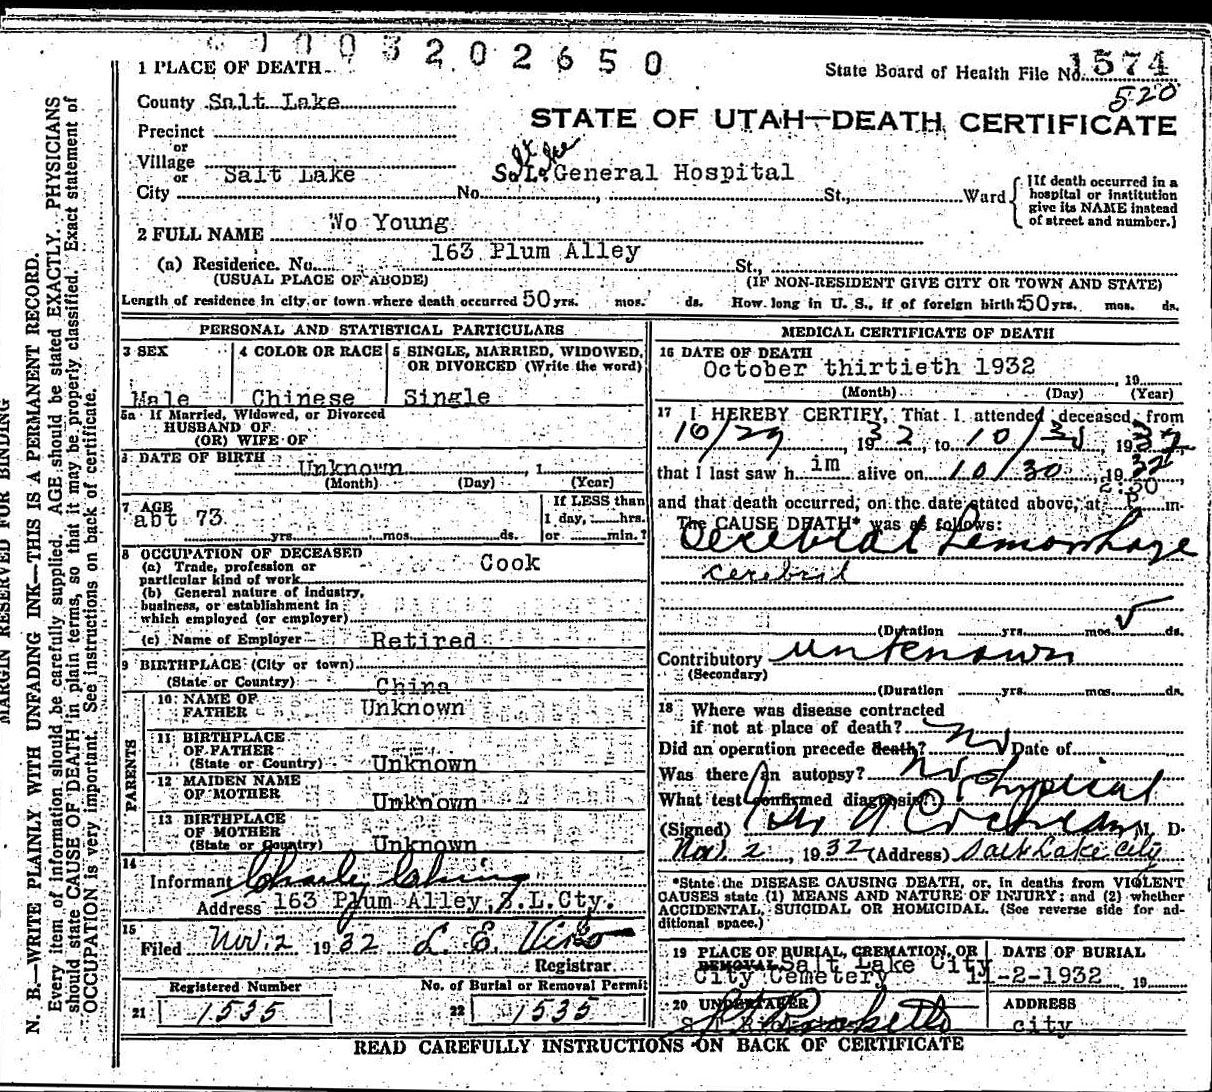 0003202650
1 PLACE OF DEATH
State Board of Health File No. 1574
520
County Salt Lake
STATE OF UTAH—DEATH CERTIFICATE
Precinct
or
Village
or
City Salt Lake No. General Hospital St., Ward
[If death occurred in a hospital or institution give its NAME instead of street and number.]
2 FULL NAME Wo Young
(a) Residence. No. 163 Plum Alley St.,
(USUAL PLACE OF ABODE) (IF NON-RESIDENT GIVE CITY OR TOWN AND STATE)
Length of residence in city or town where death occurred 50 yrs. mos. ds. How long in U. S., if of foreign birth? 50 yrs. mos. ds.
PERSONAL AND STATISTICAL PARTICULARS
3 SEX Male
4 COLOR OR RACE Chinese
5 SINGLE, MARRIED, WIDOWED, OR DIVORCED (Write the word) Single
5a If Married, Widowed, or Divorced
HUSBAND OF
(OR) WIFE OF
DATE OF BIRTH Unknown, 1
(Month) (Day) (Year)
7 AGE abt 73
yrs. mos. ds.
If LESS than
1 day, hrs.
or min.?
8 OCCUPATION OF DECEASED
(a) Trade, profession or
particular kind of work Cook
(b) General nature of industry,
business, or establishment in
which employed (or employer)
(c) Name of Employer Retired
9 BIRTHPLACE (City or town)
(State or Country) China
PARENTS
10 NAME OF
FATHER Unknown
11 BIRTHPLACE
OF FATHER
(State or Country) Unknown
12 MAIDEN NAME
OF MOTHER Unknown
13 BIRTHPLACE
OF MOTHER
(State or Country) Unknown
14
Informant Charley Ching
Address 163 Plum Alley, S.L.Cty.
15
Filed Nov. 2 1932
Registrar.
Registered Number
21 1535
No. of Burial or Removal Permit
22 1535
MEDICAL CERTIFICATE OF DEATH
16 DATE OF DEATH
October thirtieth 1932, 19
(Month) (Day) (Year)
17 I HEREBY CERTIFY, That I attended deceased from
10/29, 1932, to 10/30, 1932,
that I last saw h im alive on 10/30, 1932,
and that death occurred, on the date stated above, at 2:30 P m.
The CAUSE DEATH* was as follows:
Cerebral Hemorrhage
cerebral
(Duration yrs. mos. 5 ds.
Contributory unknown
(Secondary)
(Duration yrs. mos. ds.
18 Where was disease contracted
if not at place of death?
Did an operation precede death? No Date of
Was there an autopsy? No
What test confirmed diagnosis? Physical
(Signed) M. D.
Nov. 2, 1932 (Address) Salt Lake City
*State the DISEASE CAUSING DEATH, or, in deaths from VIOLENT
CAUSES state (1) MEANS AND NATURE OF INJURY; and (2) whether
ACCIDENTAL, SUICIDAL OR HOMICIDAL. (See reverse side for ad-
ditional space.)
19 PLACE OF BURIAL, CREMATION, OR
REMOVAL Salt Lake City
City Cemetery
DATE OF BURIAL
11-2-1932, 19
20 UNDERTAKER
ADDRESS
city
READ CAREFULLY INSTRUCTIONS ON BACK OF CERTIFICATE
MARGIN RESERVED FOR BINDING
N. B.—WRITE PLAINLY WITH UNFADING INK—THIS IS A PERMANENT RECORD.
Every item of information should be carefully supplied. AGE should be stated EXACTLY. PHYSICIANS
should state CAUSE OF DEATH in plain terms, so that it may be properly classified. Exact statement of
OCCUPATION is very important. See instructions on back of certificate.